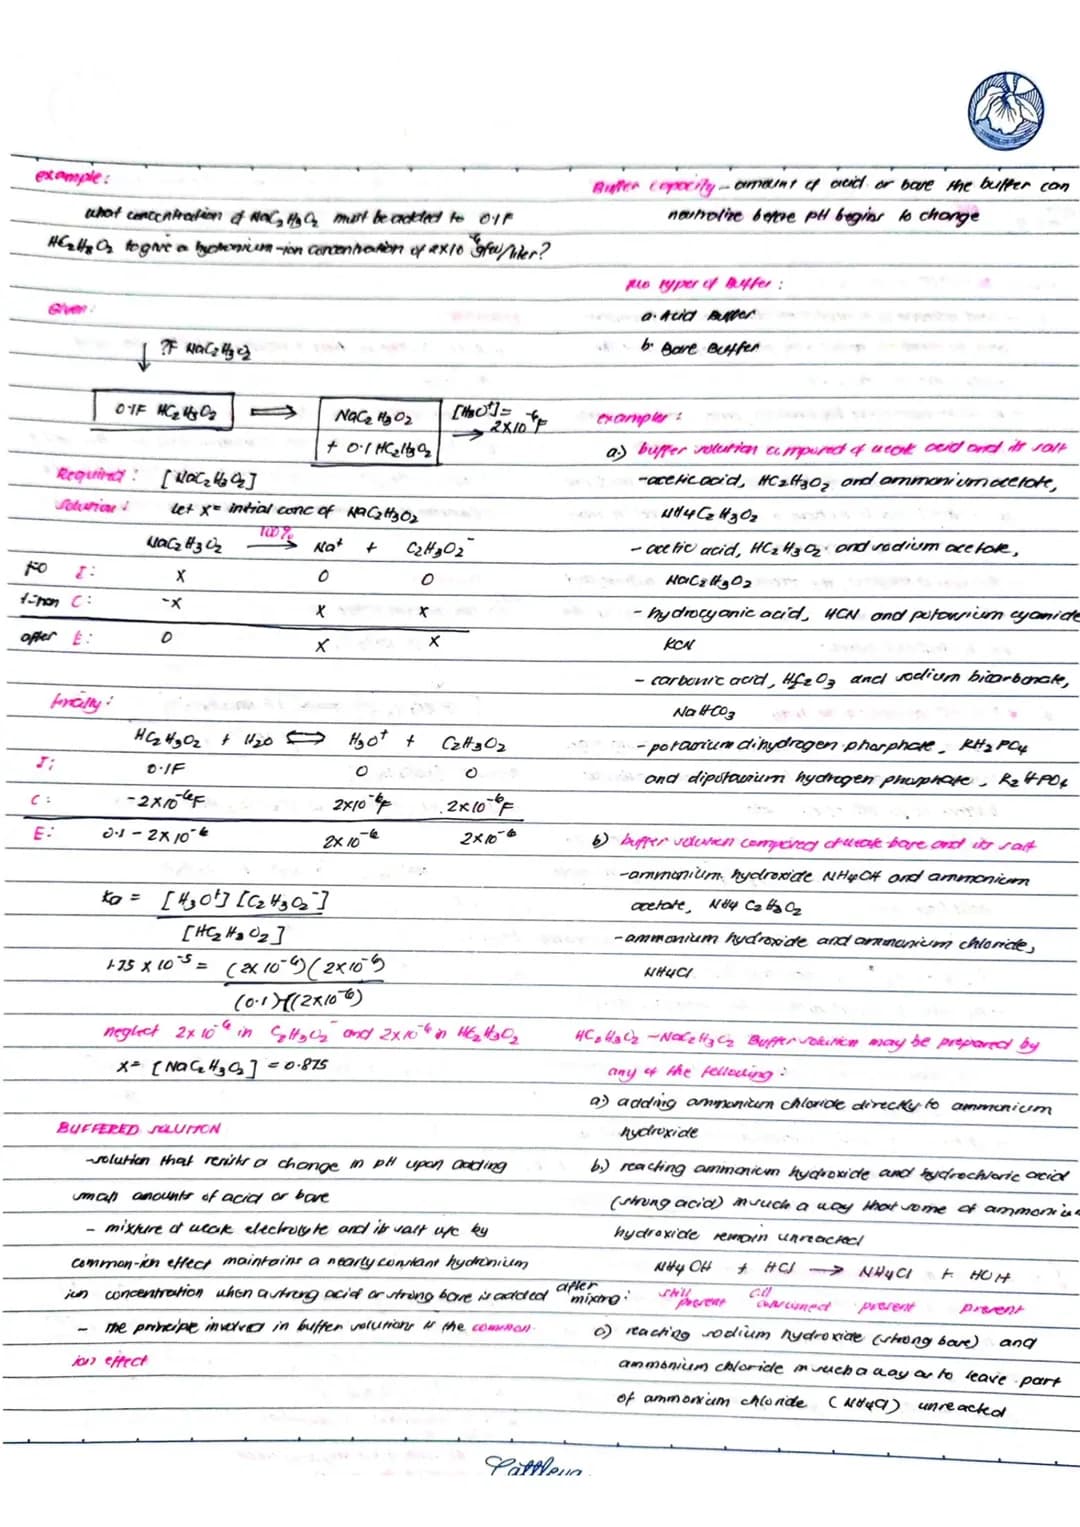 example:
what concentration of NaC2H3O2 must be added to 0.1F
HC2H3O2 to give a hydronium-ion concentration of 2x10⁻⁶ gfw/liter?
Given:
?F NaC2H3O2
0.1F HC2H3O2 ⇌ NaC2H3O2 + 0.1 HC2H3O2 → [H3O⁺]= 2x10⁻⁶F
Required: [NaC2H3O2]
Solution: Let x= intial conc of NaC2H3O2
NaC2H3O2 100% → Na⁺ + C2H3O2⁻
I: x 0 0
C: -x x x
after E: 0 x x
finally:
HC2H3O2 + H2O ⇌ H3O⁺ + C2H3O2
I: 0.1F 0 0
C: -2x10⁻⁶F 2x10⁻⁶F 2x10⁻⁶F
E: 0.1 - 2x10⁻⁶ 2x10⁻⁶ 2x10⁻⁶
Ka = [H3O⁺][C2H3O2⁻]
[HC2H3O2]
1.75 x 10⁻⁵ = (2x10⁻⁶)(2x10⁻⁶)
(0.1)-(2x10⁻⁶)
neglect 2x10⁻⁶ in C2H3O2⁻ and 2x10⁻⁶ in HC2H3O2
x= [NaC2H3O2] = 0.875
BUFFERED SOLUTION
-solution that resists a change in pH upon adding
small amounts of acid or base
- mixture of weak electrolyte and its salt w/c by
common-ion effect maintains a nearly constant hydronium
ion concentration when a strong acid or strong base is added
- the principle involved in buffer solutions is the common
ion effect
Buffer capacity - amount of acid or base the buffer can
neutralize before pH begins to change
two types of Buffer:
a. Acid Buffer
b. Base Buffer
examples:
a.) buffer solution composed of weak acid and its salt
-acetic acid, HC2H3O2 and ammonium acetate,
NH4C2H3O2
- acetic acid, HC2H3O2 and sodium acetate,
NaC2H3O2
- hydrocyanic acid, HCN and potassium cyanide
KCN
- carbonic acid, H2CO3 and sodium bicarbonate,
NaHCO3
- potassium dihydrogen phosphate, KH2PO4
and dipotassium hydrogen phosphate, K2HPO4
b) buffer solution composed of weak base and its salt
-ammonium hydroxide NH4OH and ammonium
acetate, NH4C2H3O2
-ammonium hydroxide and ammonium chloride,
NH4Cl
HC2H3O2 - NaC2H3O2 Buffer solution may be prepared by
any of the following:
a) adding ammonium chloride directly to ammonium
hydroxide
b.) reacting ammonium hydroxide and hydrochloric acid
(strong acid) in such a way that some of ammonium
hydroxide remain unreacted
NH4OH + HCl → NH4Cl + HOH
after mixing: still present all consumed present present
c) reacting sodium hydroxide (strong base) and
ammonium chloride in such a way as to leave part
of ammonium chloride (NH4Cl) unreacted
Cattleya